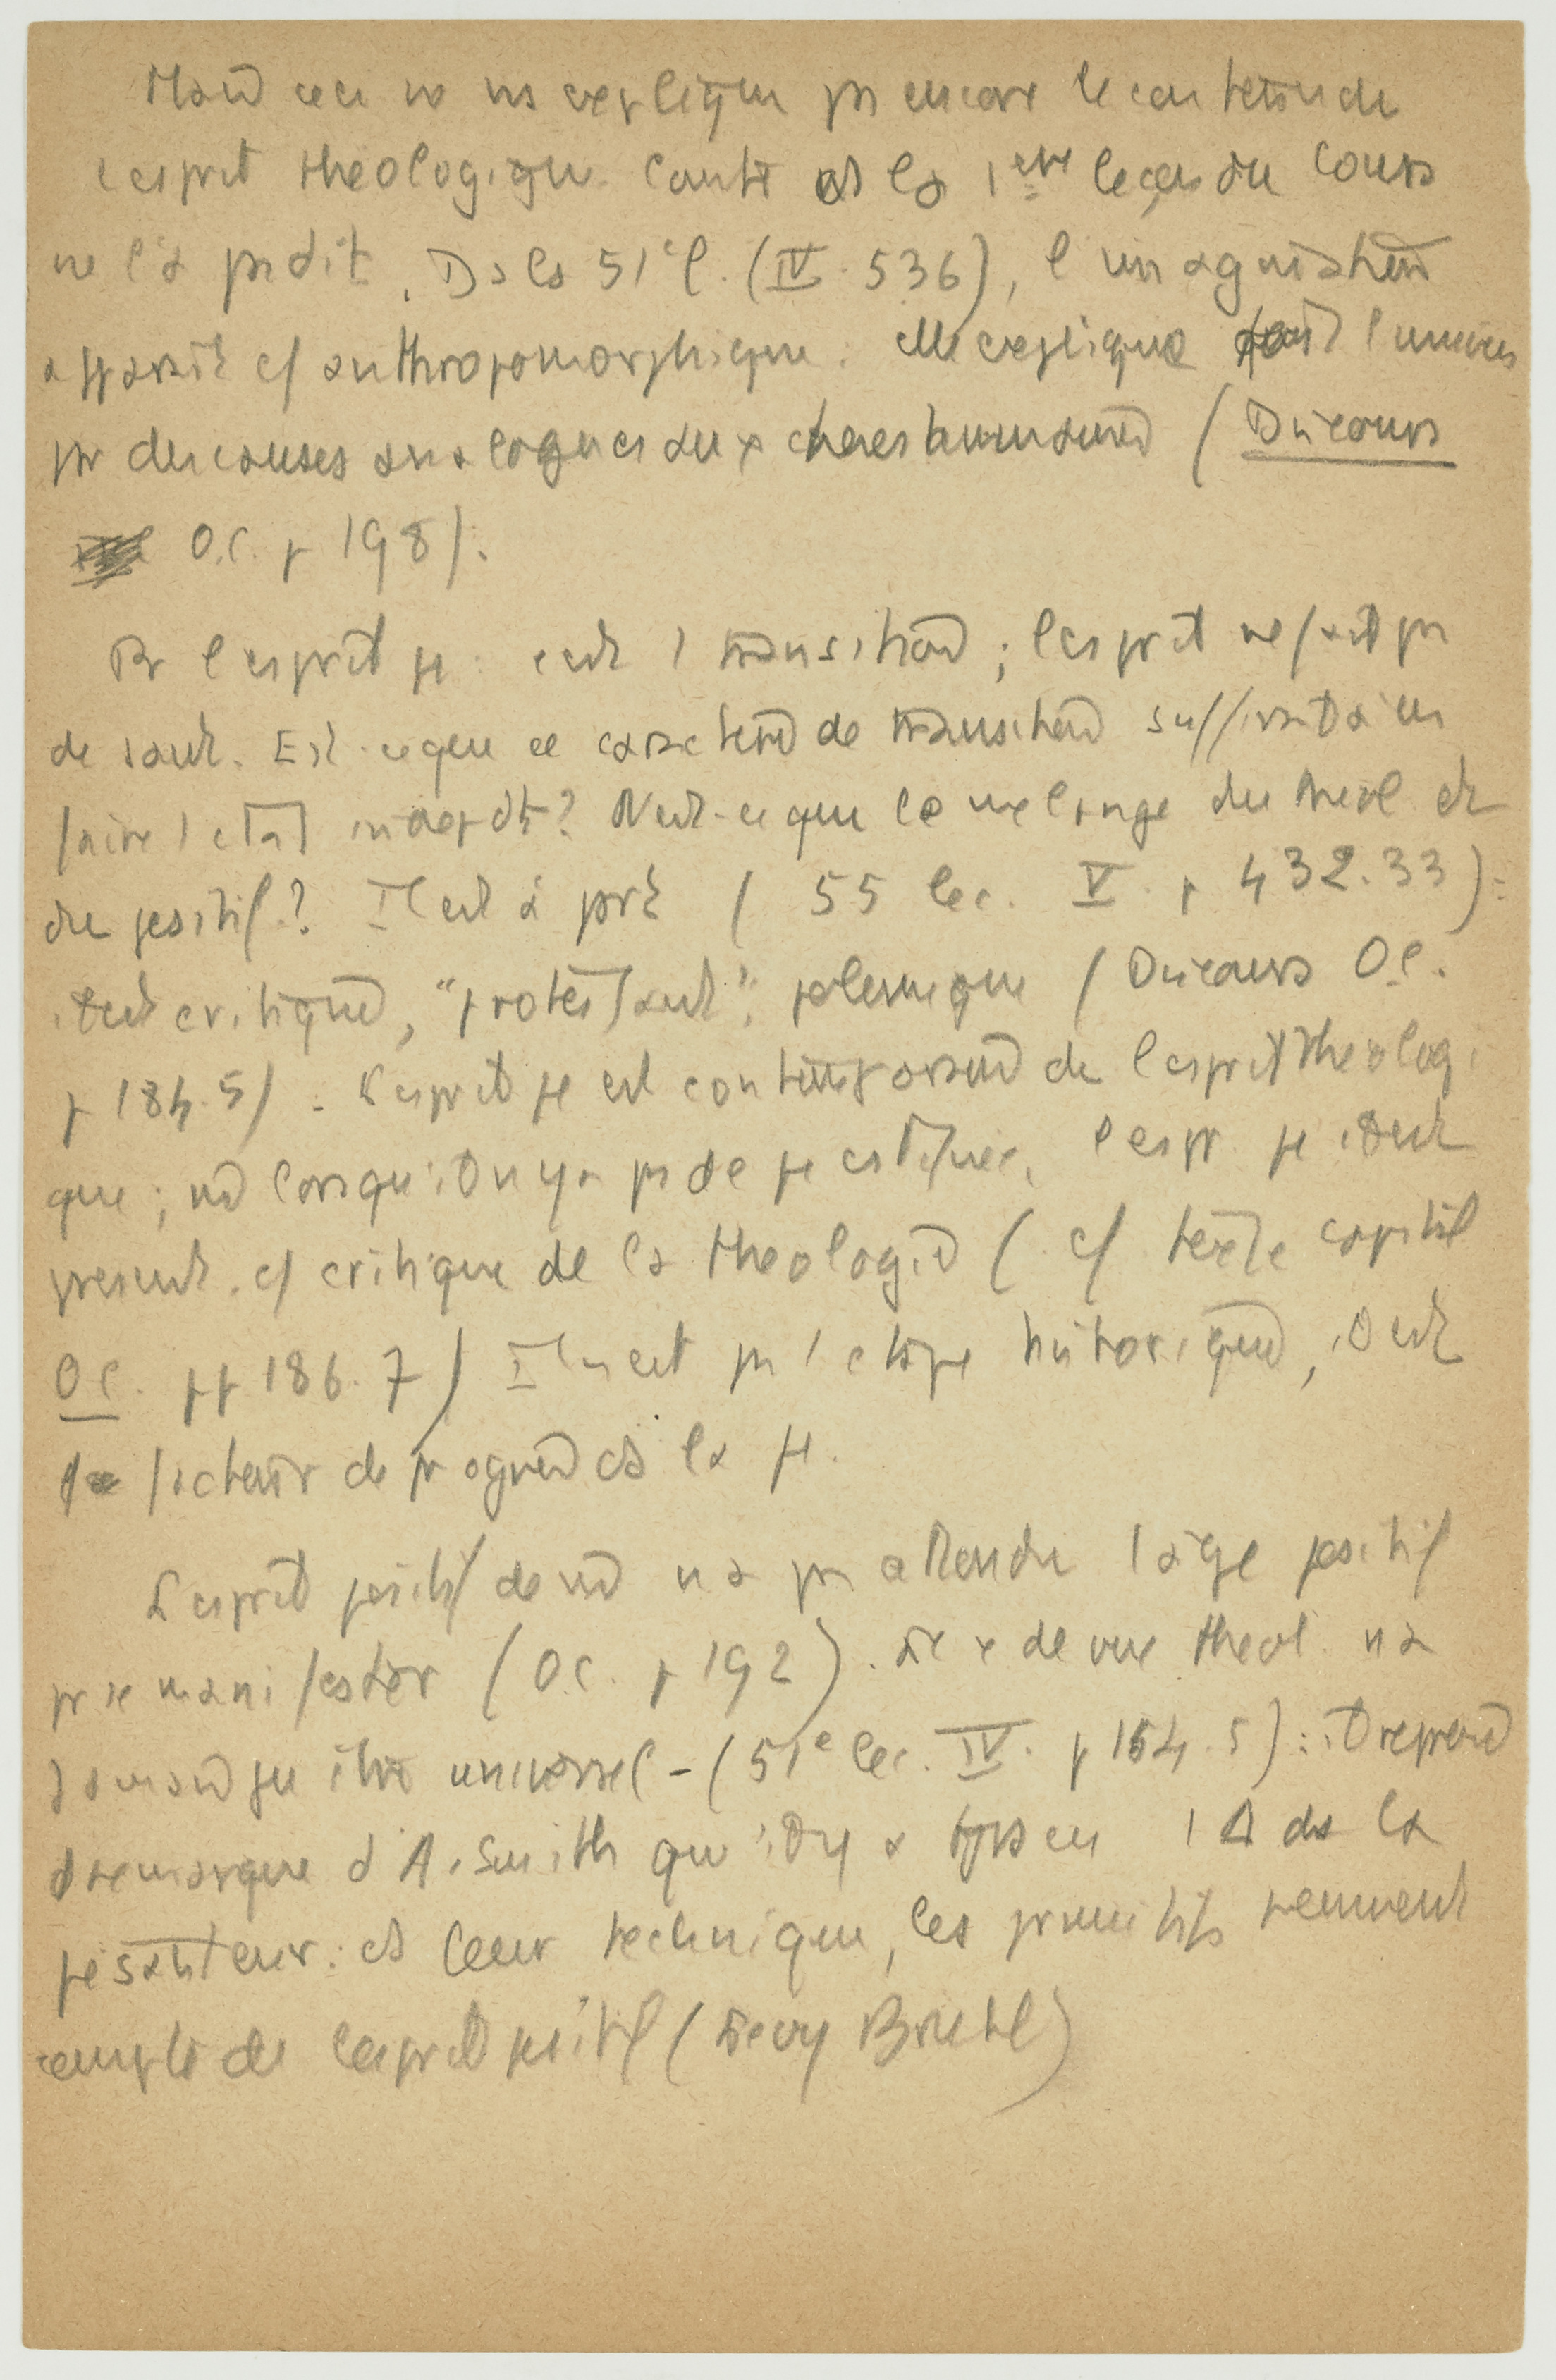 Mais ceci ne ns explique pr encore le contenu de
l'esprit theologique. Comte ds la 1ere leçon du Cours
ne l'a pas dit. Ds la 51e l. (IV. 536), l'imagination
apparait c/ anthropomorphique : elle explique tout l'univers
par des causes analogues aux choses humaines (Discours
O.C. p 198).
Pr l'esprit μ : c'est 1 transition ; l'esprit ne fait pas
de saut. Est-ce que ce caractere de transition suffirait à en
faire 1 etat indepdt ? N'est-ce que le melange du theol et
du positif ? Il est à part ( 55 lec. V. p 432.33) :
il est critique, "protestant", polemique ( Discours O.C.
p 184.5) . L'esprit μ est contemporain de l'esprit theologi
que ; m lorsqu'il n'y a pas de μ l'espr. μ il est
present c/ critique de la theologie ( c/ texte capital
O C. pp 186.7 ) Il n'est pas 1 etape historique, il est
facteur de progres ds la μ.
L'esprit positif de m n'a pas attendu l'age positif
pr se manifester (O.C. p 192). Le x de vue theol. n'a
jamais pu etre universel - (51e lec. IV. p 154.5) : il reprend
1 remarque d'A. Smith qu'il y a tjrs eu 1 Δ de la
pesanteur : ds leur technique, les primitifs tiennent
compte de l'esprit positif (Levy Bruhl)